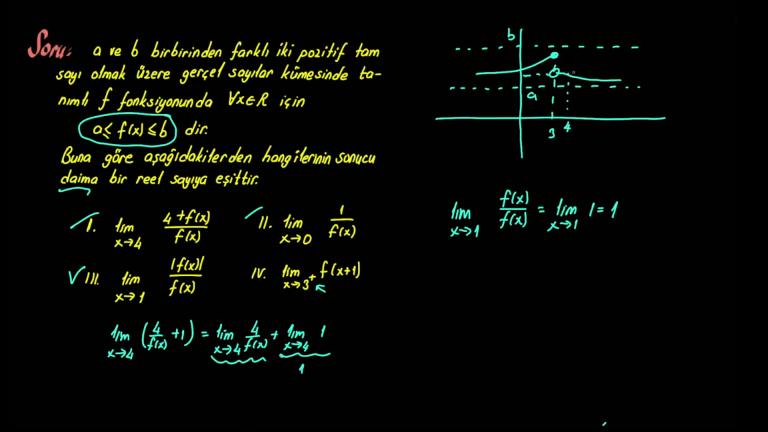 Soru: a ve b birbirinden farklı iki pozitif tam
sayı olmak üzere gerçel sayılar kümesinde ta-
nımlı f fonksiyonunda ∀x∈R için
a ≤ f(x) ≤ b dir.
Buna göre aşağıdakilerden hangilerinin sonucu
daima bir reel sayıya eşittir.
I. lim x→4 4+f(x) / f(x)
II. lim x→0 1 / f(x)
III. lim x→1 |f(x)| / f(x)
IV. lim x→3⁺ f(x+1)
lim x→4 (4/f(x) + 1) = lim x→4 4/f(x) + lim x→4 1
1
b
a
3 4
lim x→1 f(x)/f(x) = lim x→1 1 = 1